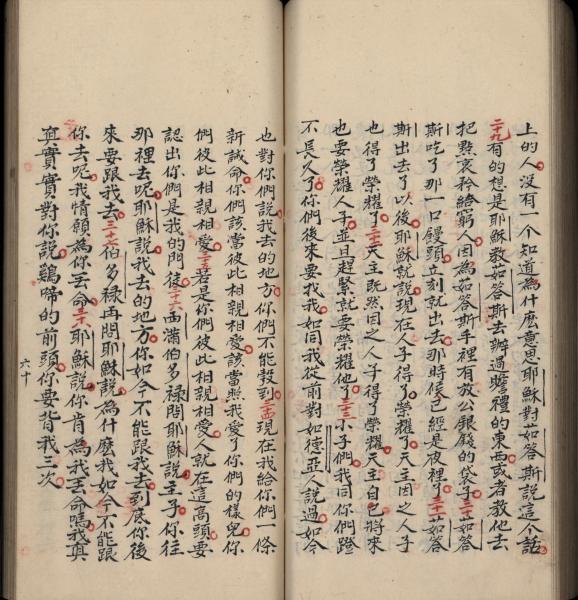 上的人沒有一个知道為什麼意思耶穌對茹答斯說這个話
二十九有的想是耶穌教茹答斯去辦過瞻禮的東西或者教他去
把點哀矜給窮人因為茹答斯手裡有放公銀錢的袋子三十茹答
斯吃了那一口饅頭立刻就出去那時候已經是夜裡了三十一茹答
斯出去了以後耶穌就說現在人子得了榮耀了天主因之人子
也得了榮耀了三十二天主既然因之人子得了榮耀天主自己將來
也要榮耀人子並且趕緊就要榮耀他了三十三小子們我同你們蹬
不長久了你們後來要找我如同我從前對如德亞人說過如今
也對你們說我去的地方你們不能彀到三十四現在我給你們一條
新誡命你們該當彼此相親相愛該當照我愛了你們的樣兒你
們彼此相親相愛三十五若是你們彼此相親相愛人就在這高頭要
認出你們是我的門徒三十六西滿伯多祿問耶穌說主子你往
那裡去呢耶穌說我去的地方你如今不能跟我去到底你後
來要跟我去三十七伯多祿再問耶穌說為什麼我如今不能跟
你去呢我情願為你丟命三十八耶穌說你肯為我丟命嗎我真
真實實對你說鷄啼的前頭你要背我三次
六十